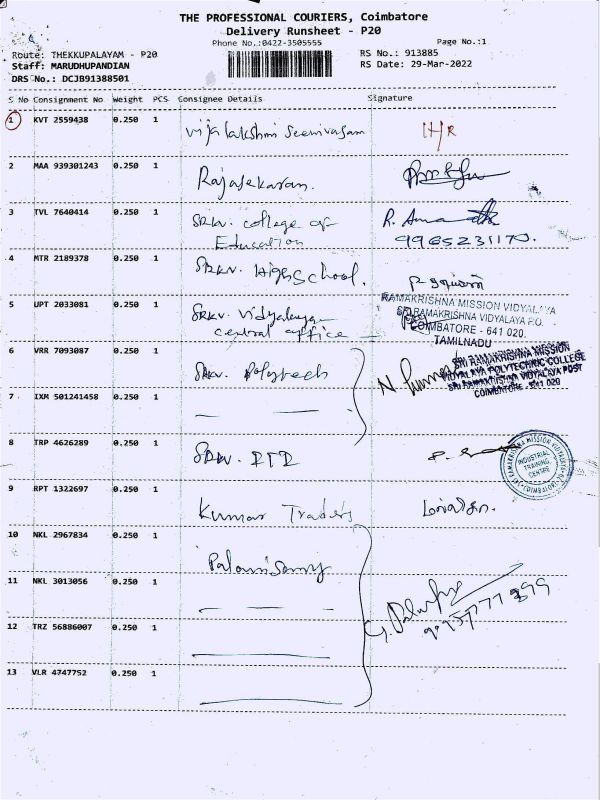 THE PROFESSIONAL COURIERS, Coimbatore
Delivery Runsheet - P20
Phone No.:0422-3505555
Page No.:1
Route: THEKKUPALAYAM - P20
RS No.: 913885
Staff: MARUDHUPANDIAN
RS Date: 29-Mar-2022
DRS No.: DCJB91388501
S No Consignment No Weight PCS Consignee Details Signature
1 KVT 2559438 0.250 1 Vijilakshmi Seenivasam H/R
2 MAA 939301243 0.250 1 Rajasekaran.
3 TVL 7640414 0.250 1 SRKV. College of
Education
9965231170.
4 MTR 2189378 0.250 1 SRKV. High School.
5 UPT 2033081 0.250 1 SRKV. Vidyalaya
central office
RAMAKRISHNA MISSION VIDYALAYA
SRI RAMAKRISHNA VIDYALAYA P.O.
COIMBATORE - 641 020.
TAMILNADU
6 VRR 7093087 0.250 1 SRKV. Polytech
SRI RAMAKRISHNA MISSION
VIDYALAYA POLYTECHNIC COLLEGE
SRI RAMAKRISHNA VIDYALAYA POST
COIMBATORE - 641 020
7 IXM 501241458 0.250 1
8 TRP 4626289 0.250 1 SRKV.
INDUSTRIAL
TRAINING
CENTRE
9 RPT 1322697 0.250 1 Kumar Traders
10 NKL 2967834 0.250 1 Palanisamy
11 NKL 3013056 0.250 1
12 TRZ 56886007 0.250 1
13 VLR 4747752 0.250 1